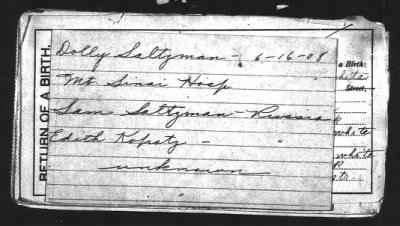 RETURN OF A BIRTH.
Dolly Saltzman - 6-16-08
Mt Sinai Hosp "
Sam Saltzman - Russia
Edith Kopatz - "
unknown
a Birth:
Street,
white
white